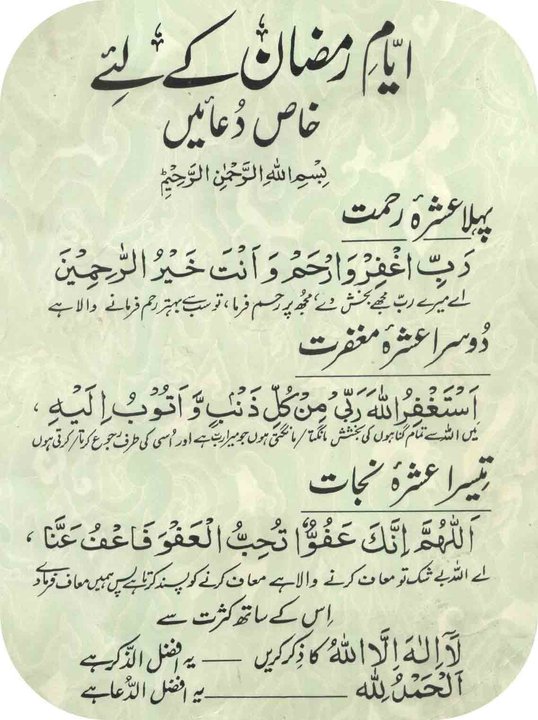 ایّامِ رمضان کے لئے
خاص دُعائیں
بِسْمِ اللهِ الرَّحْمٰنِ الرَّحِيْمِ
پہلا عشرۂ رحمت
رَبِّ اغْفِرْ وَارْحَمْ وَاَنْتَ خَيْرُ الرّٰحِمِيْنَ
اے میرے ربّ مجھے بخش دے، مجھ پر رحم فرما، تو سب سے بہتر رحم فرمانے والا ہے
دُوسرا عشرۂ مغفرت
اَسْتَغْفِرُ اللهَ رَبِّیْ مِنْ کُلِّ ذَنْۢبٍ وَّاَتُوْبُ اِلَيْهِ ،
میں اللہ سے تمام گناہوں کی بخشش مانگتا/مانگتی ہوں جو میرا ربّ ہے اور اُسی کی طرف رجوع کرتا/کرتی ہوں
تیسرا عشرۂ نجات
اَللّٰهُمَّ اِنَّكَ عَفُوٌّ تُحِبُّ الْعَفْوَ فَاعْفُ عَنَّا ،
اے اللہ بے شک تو معاف کرنے والا ہے معاف کرنے کو پسند کرتا ہے پس ہمیں معاف فرما دے
اِس کے ساتھ کثرت سے
لَآ اِلٰهَ اِلَّا اللهُ کا ذکر کریں — یہ افضل الذّکر ہے
اَلْحَمْدُ لِلّٰهِ — یہ افضل الدُّعا ہے